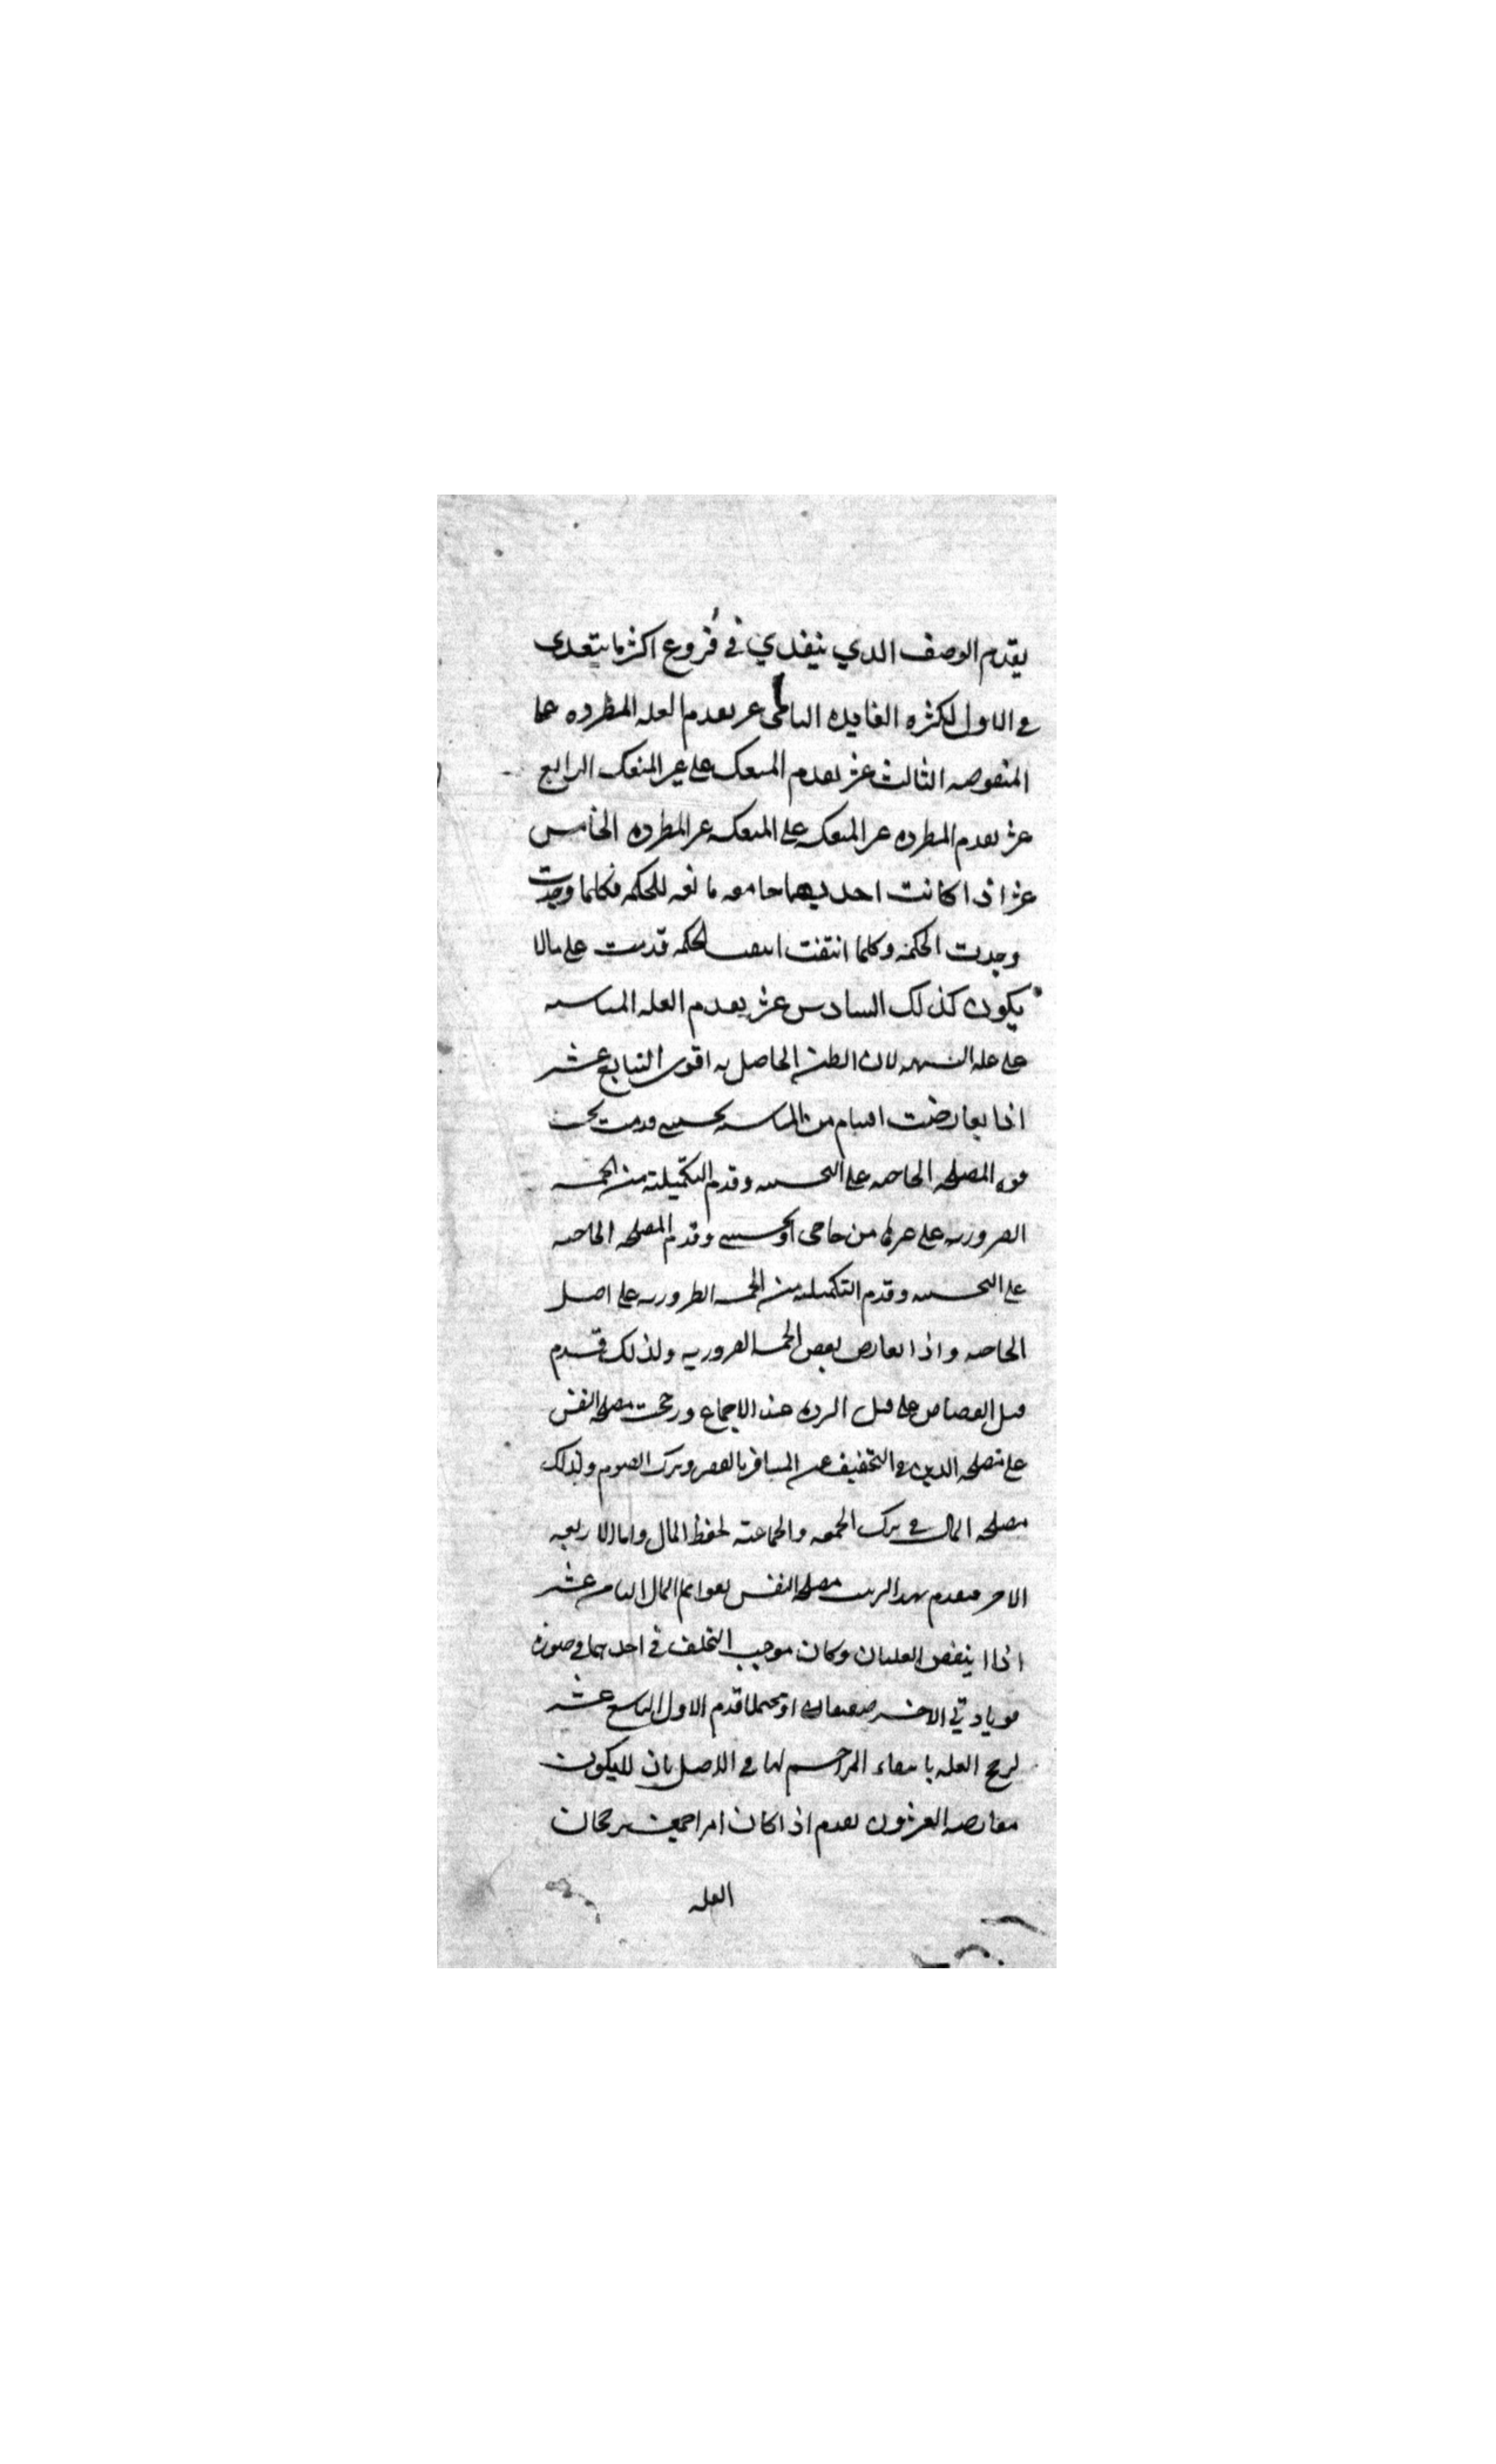 يقدم الوصف الدي يتعدي في فروع اكثر ما يتعدى
في الاول لكثره الفايده الثاني عشر يقدم العله المطرده على
المنقوصه الثالث عشر يقدم المنعكسه على غير المنعكسه الرابع
عشر يقدم المطرده غير المنعكسه على المنعكسه غير المطرده الخامس
عشر اذا كانت احديهما جامعه مانعه للحكمه فكلما وجدت
وجدت الحكمه وكلما انتفت انتفت الحكمه قدمت على مالا
يكون كذلك السادس عشر يقدم العله المناسبه
على عله الشبهه لان الظن الحاصل به اقوى السابع عشر
اذا تعارضت اقسام من المناسبه بحسب قدمت بحسب
قوه المصلحه الحاجيه على التحسينيه وقدم التكميليه من الخمسه
الضروريه على من حاجى او تحسيني وقدم المصلحه الحاجيه
على التحسينيه وقدم التكميليه من الخمسه الضروريه على اصل
الحاجيه واذا تعارض بعض الخمسه الضروريه ولذلك قدم
قتل القصاص على قتل الرده عند الاجماع ورجحت مصلحه النفس
على مصلحه الدين في التخفيف عن المسافر بالقصر وترك الصوم ولذلك
مصلحه المال في ترك الجمعه والجماعه لحفظ المال واما الاربعه
الاخر فيقدم بهذا الترتيب مصلحه النفس المال الثامن عشر
اذا انتقض العلتان وكان موجب التخلف في احديهما في صوره
قويا وفي الاخر ضعيفا او محتملا قدم الاول التاسع عشر
ترجح العله بانتفاء المزاحم لها في الاصل بان لا يكون
معارضه العشرون يقدم اذا كان رجحان
العله